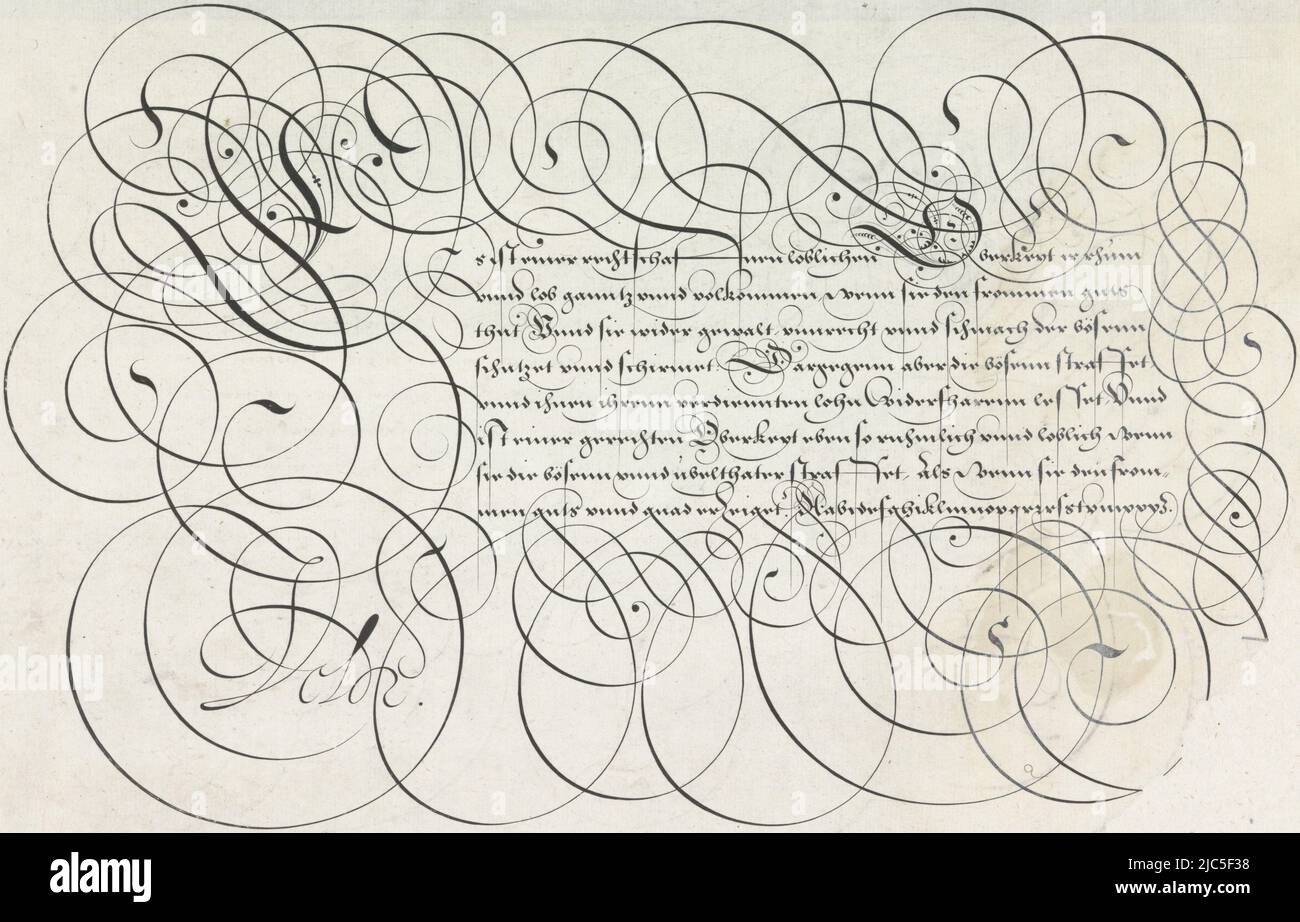 Es ist einer rechtschaffnen loblichen Oberkeyt ir rhum
vnnd lob ganntz vnnd volkommen, Wenn sie den frommen guts
thut, Vnnd sie wider gewalt, vnnrecht vnnd schmach der bösenn
schutzet vnnd schirmet. Dargegenn aber die bösenn straffet,
vnnd ihnen ihrenn verdiennten lohn Widerfharenn lesset, Vnnd
ist einer gerechten Oberkeyt eben so ruhmlich vnnd loblich Wenn
sie die bösenn vnnd übelthater straffet, Als Wenn sie den from-
men guts vnnd gnad erZeiget.
alamy
alamy
Image ID: 2JC5F38
www.alamy.com